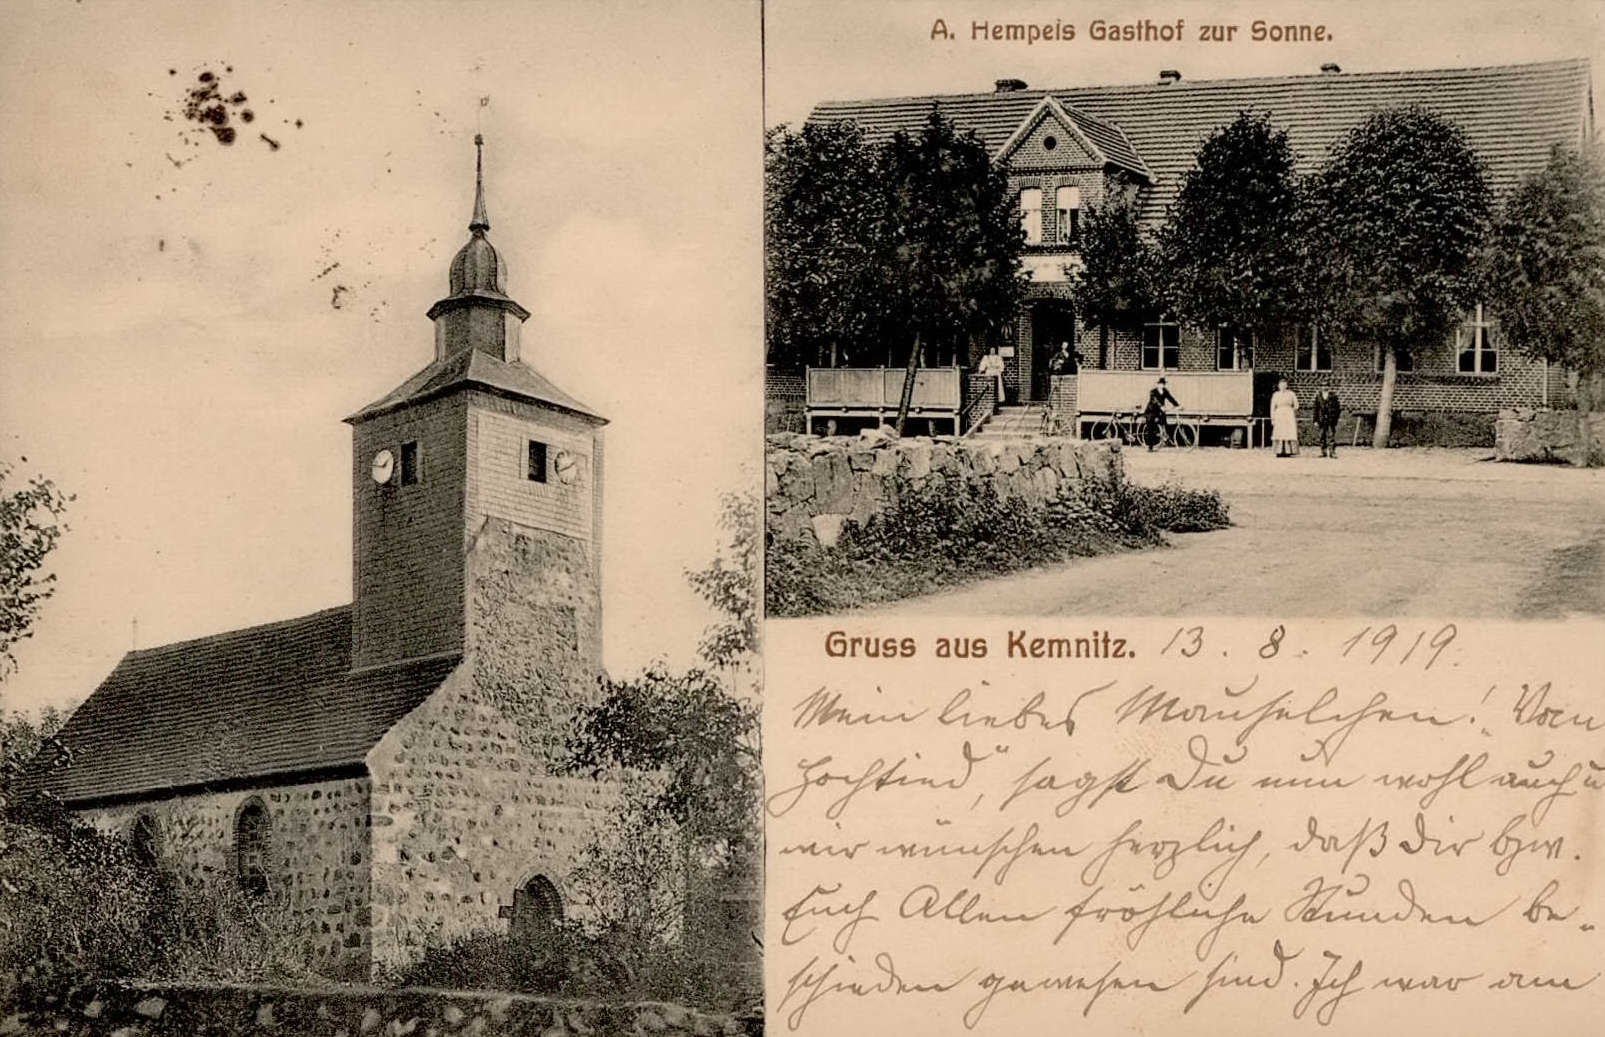 A. Hempels Gasthof zur Sonne.
Gruss aus Kemnitz. 13. 8. 1919.
Mein liebes Mauselchen! „Von
Hochtied", sagst Du nun wohl auch u
wir wünschen herzlich, daß Dir bzw.
Euch Allen fröhliche Stunden be-
schieden gewesen sind. Ich war am